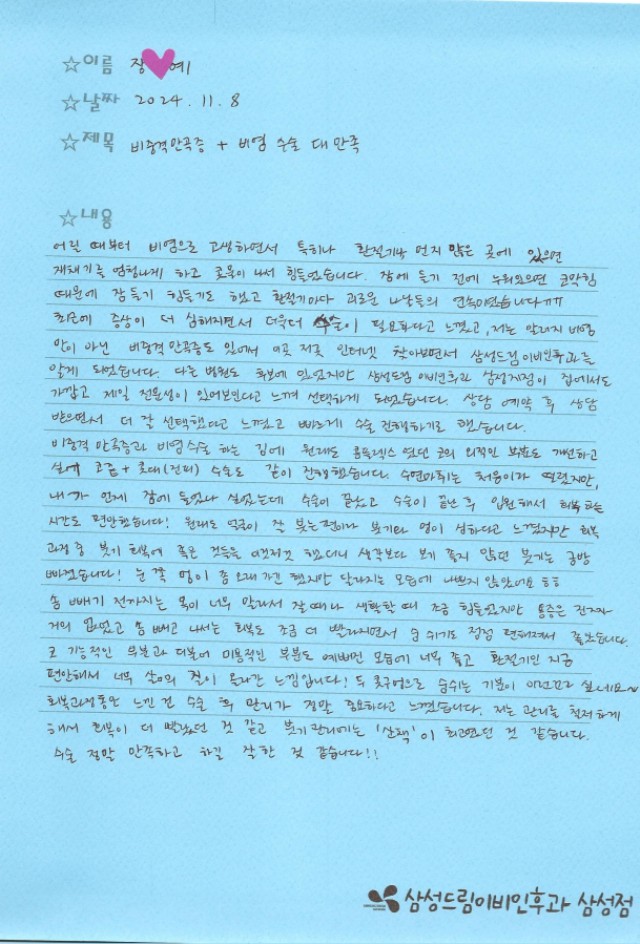 ☆이름 장♥예
☆날짜 2024. 11. 8
☆제목 비중격만곡증 + 비염 수술 대만족
☆내용
어릴 때부터 비염으로 고생하면서 특히나 환절기나 먼지 많은 곳에 있으면
재채기를 엄청나게 하고 콧물이 나서 힘들었습니다. 잠에 들기 전에 누워있으면 코막힘
때문에 잠들기 힘들기도 했고 환절기마다 괴로운 나날들의 연속이었습니다ㅠㅠ
최근에 증상이 더 심해지면서 더욱더 수술이 필요하다고 느꼈고, 저는 알러지 비염
만이 아닌 비중격만곡증도 있어서 이곳 저곳 인터넷 찾아보면서 삼성드림이비인후과를
알게 되었습니다. 다른 병원도 후보에 있었지만 삼성드림 이비인후과 삼성지점이 집에서도
가깝고 제일 전문성이 있어보인다고 느껴 선택하게 되었습니다. 상담 예약 후 상담
받으면서 더 잘 선택했다고 느꼈고 빠르게 수술 진행하기로 했습니다.
비중격 만곡증과 비염수술 하는 김에 원래도 콤플렉스 였던 코의 외적인 부분도 개선하고
싶어 코끝 + 콧대(진피) 수술도 같이 진행했습니다. 수면마취는 처음이라 떨렸지만,
내가 언제 잠에 들었나 싶었는데 수술이 끝났고 수술이 끝난 후 입원해서 회복하는
시간도 편안했습니다! 원래도 얼굴이 잘 붓는편이라 붓기와 멍이 심하다고 느꼈지만 회복
과정 중 붓기 회복에 좋은 것들을 이것저것 했더니 생각보다 보기 좋지 않던 붓기는 금방
빠졌습니다! 눈 쪽 멍이 좀 오래 가긴 했지만 달라지는 모습에 나쁘지 않았어요 ㅎㅎ
솜 빼기 전까지는 목이 너무 말라서 잘 때나 생활할 때 조금 힘들었지만 통증은 진짜
거의 없었고 솜 빼고 나서는 회복도 조금 더 빨라지면서 숨 쉬기도 점점 편해져서 좋았습니다.
코 기능적인 부분과 더불어 미용적인 부분도 예뻐진 모습에 너무 좋고 환절기인 지금
편안해서 너무 삶의 질이 올라간 느낌입니다! 두 콧구멍으로 숨쉬는 기분이 이런거고 싶네요~
회복과정동안 느낀 건 수술 후 관리가 정말 중요하다고 느꼈습니다. 저는 관리를 철저하게
해서 회복이 더 빨랐던 것 같고 붓기 관리에는 '산책'이 최고였던 것 같습니다.
수술 정말 만족하고 하길 잘 한 것 같습니다!!
삼성드림이비인후과 삼성점